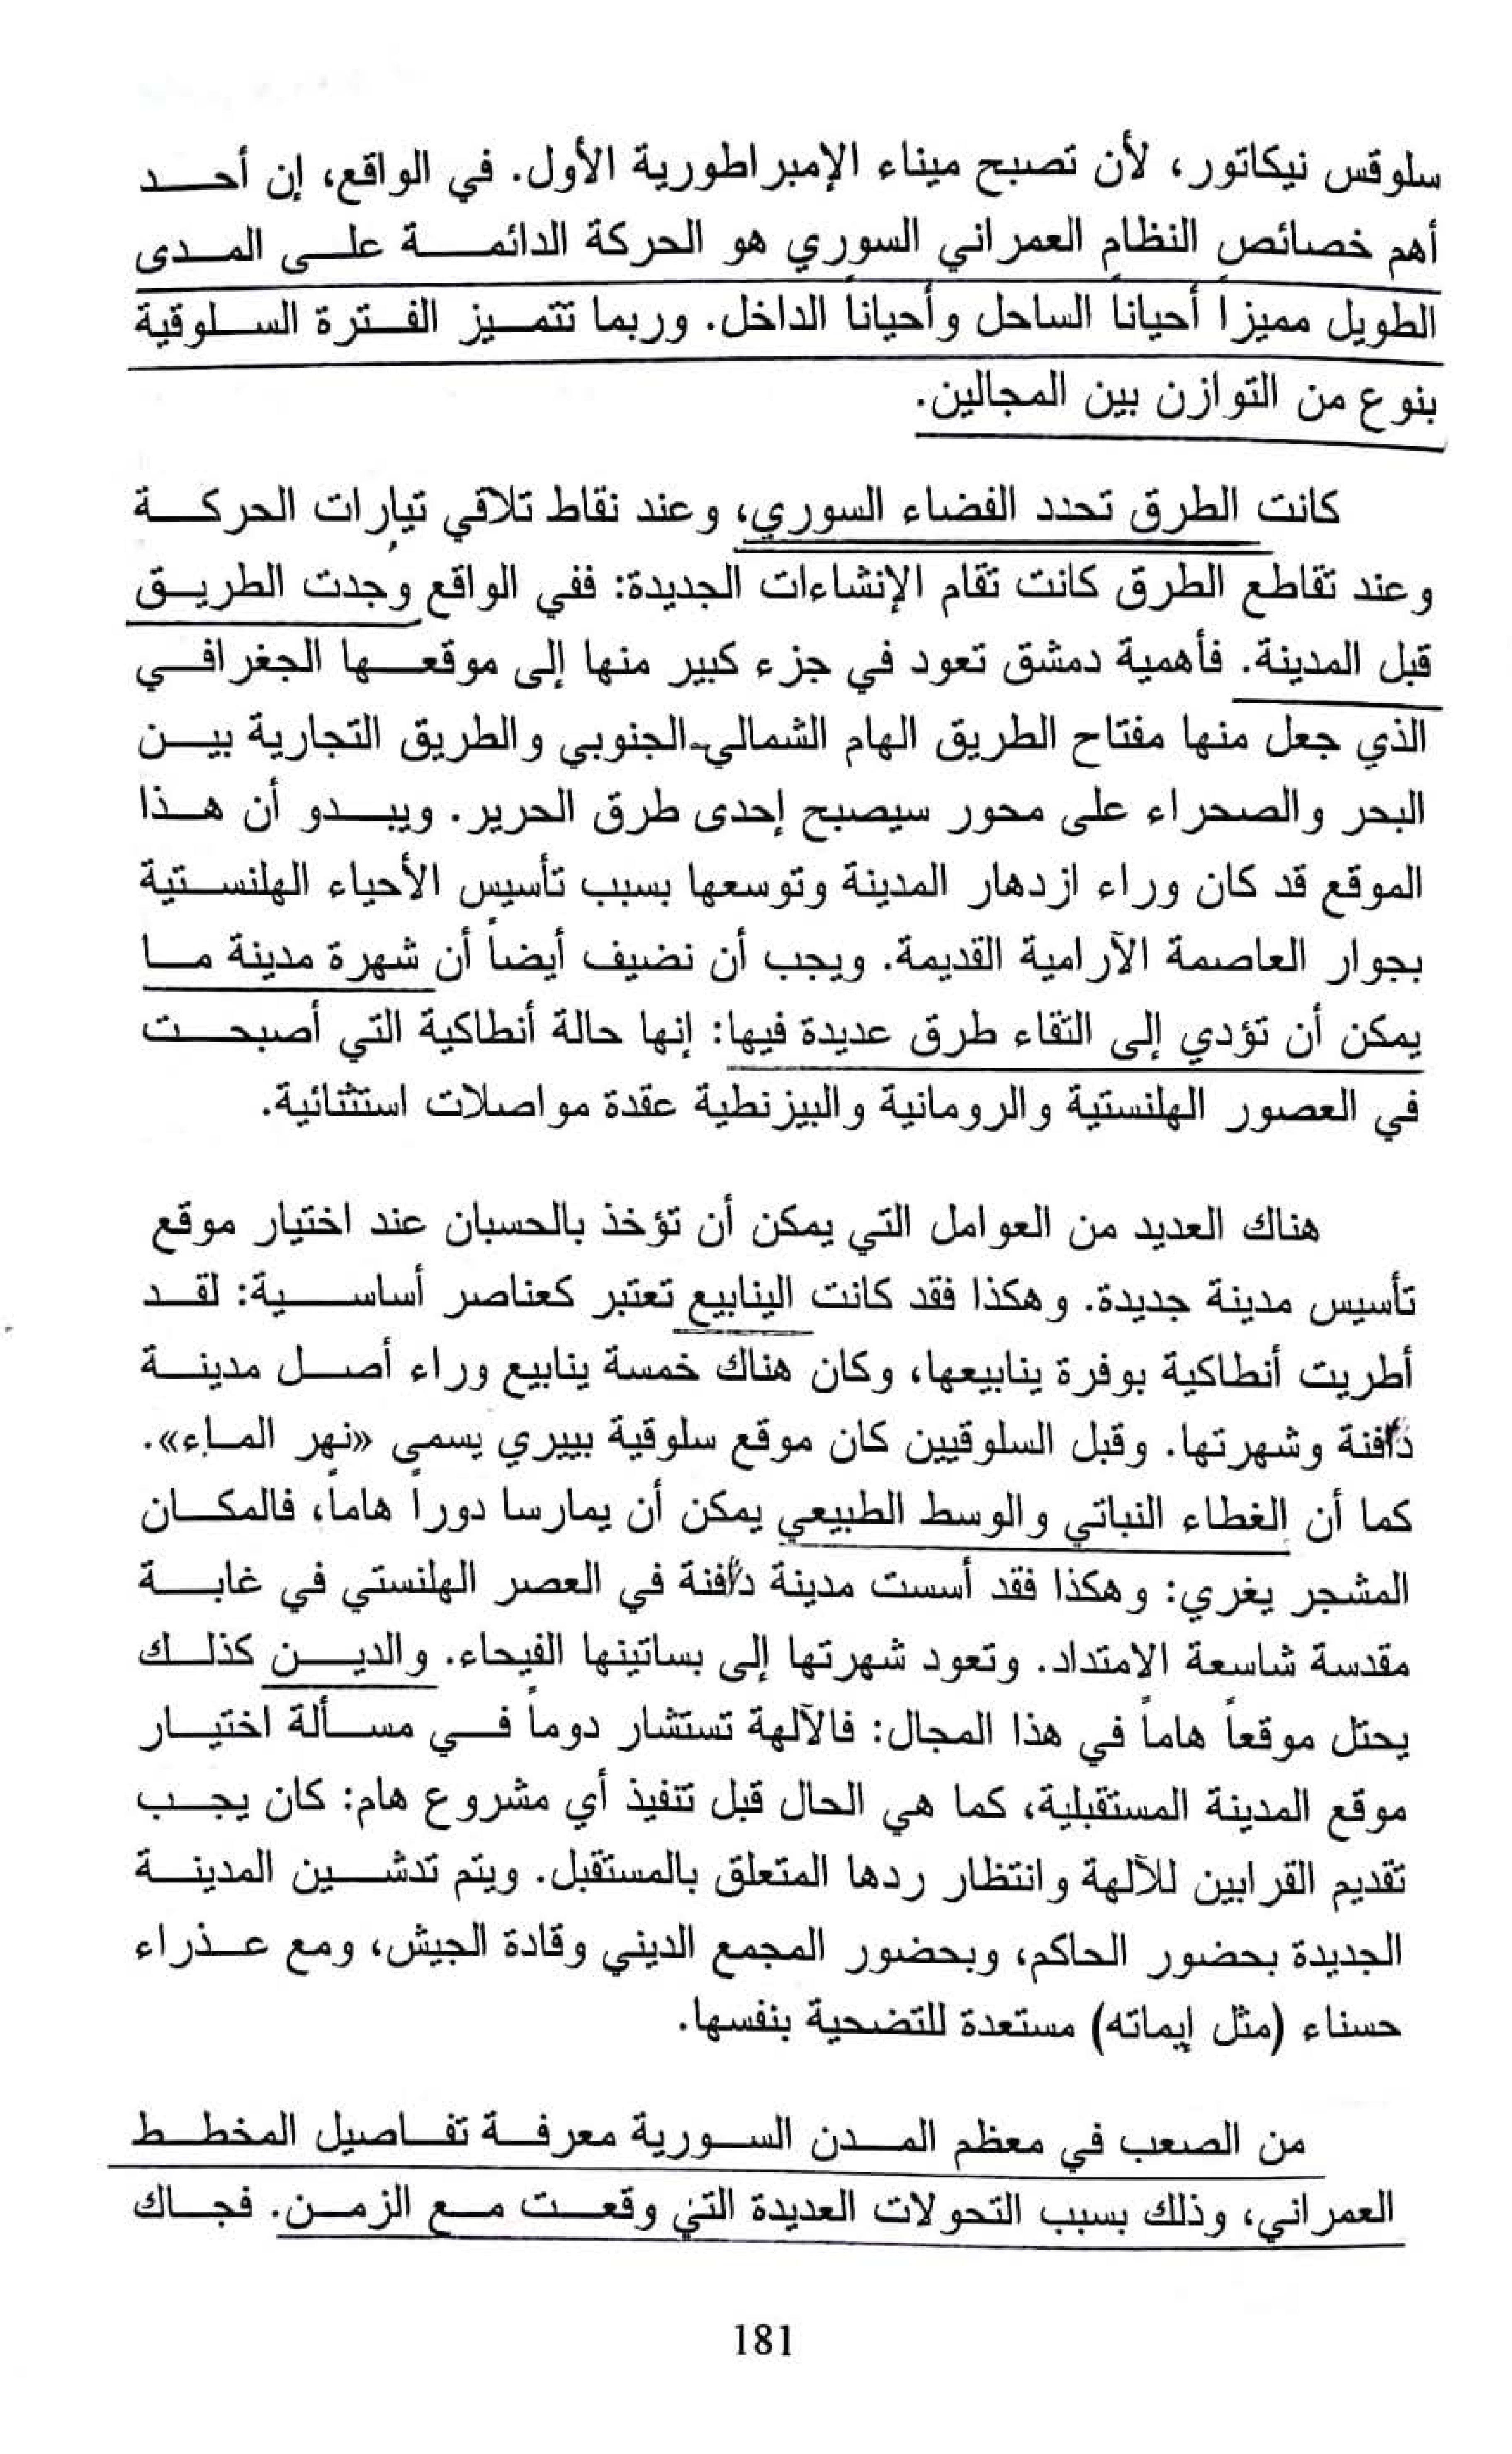 سلوقس نيكاتور، لأن تصبح ميناء الإمبراطورية الأول. في الواقع، إن أحد
أهم خصائص النظام العمراني السوري هو الحركة الدائمة على المدى
الطويل مميزاً أحياناً الساحل وأحياناً الداخل. وربما تتميز الفترة السلوقية
بنوع من التوازن بين المجالين.
كانت الطرق تحدد الفضاء السوري، وعند نقاط تلاقي تيارات الحركة
وعند تقاطع الطرق كانت تقام الإنشاءات الجديدة: ففي الواقع وجدت الطريق
قبل المدينة. فأهمية دمشق تعود في جزء كبير منها إلى موقعها الجغرافي
الذي جعل منها مفتاح الطريق الهام الشمالي-الجنوبي والطريق التجارية بين
البحر والصحراء على محور سيصبح إحدى طرق الحرير. ويبدو أن هذا
الموقع قد كان وراء ازدهار المدينة وتوسعها بسبب تأسيس الأحياء الهلنستية
بجوار العاصمة الآرامية القديمة. ويجب أن نضيف أيضاً أن شهرة مدينة ما
يمكن أن تؤدي إلى التقاء طرق عديدة فيها: إنها حالة أنطاكية التي أصبحت
في العصور الهلنستية والرومانية والبيزنطية عقدة مواصلات استثنائية.
هناك العديد من العوامل التي يمكن أن تؤخذ بالحسبان عند اختيار موقع
تأسيس مدينة جديدة. وهكذا فقد كانت الينابيع تعتبر كعناصر أساسية: لقد
أطريت أنطاكية بوفرة ينابيعها، وكان هناك خمسة ينابيع وراء أصل مدينة
دافنة وشهرتها. وقبل السلوقيين كان موقع سلوقية بييري يسمى «نهر الماء».
كما أن الغطاء النباتي والوسط الطبيعي يمكن أن يمارسا دوراً هاماً، فالمكان
المشجر يغري: وهكذا فقد أسست مدينة دافنة في العصر الهلنستي في غابة
مقدسة شاسعة الامتداد. وتعود شهرتها إلى بساتينها الفيحاء. والدين كذلك
يحتل موقعاً هاماً في هذا المجال: فالآلهة تستشار دوماً في مسألة اختيار
موقع المدينة المستقبلية، كما هي الحال قبل تنفيذ أي مشروع هام: كان يجب
تقديم القرابين للآلهة وانتظار ردها المتعلق بالمستقبل. ويتم تدشين المدينة
الجديدة بحضور الحاكم، وبحضور المجمع الديني وقادة الجيش، ومع عذراء
حسناء (مثل إيماته) مستعدة للتضحية بنفسها.
من الصعب في معظم المدن السورية معرفة تفاصيل المخطط
العمراني، وذلك بسبب التحولات العديدة التي وقعت مع الزمن. فجاك
181